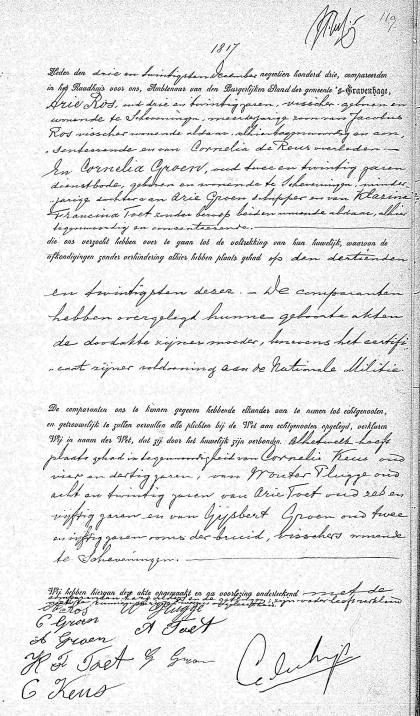 119
1817
Heden den drie en twintigsten December negentien honderd drie, compareerden
in het Raadhuis voor ons, Ambtenaar van den Burgerlijken Stand der gemeente 's-Gravenhage,
Arie Ros, oud drie en twintig jaren, visscher geboren en
wonende te Scheveningen, meerderjarige zoon van Jacobus
Ros visscher wonende aldaar, alhier tegenwoordig en con-
senteerende en van Cornelia de Reus overleden —
En Cornelia Groen, oud twee en twintig jaren
dienstbode, geboren en wonende te Scheveningen, minder-
jarige dochter van Arie Groen, schipper en van Klasina
Francina Toet zonder beroep beiden wonende aldaar, alhier
tegenwoordig en consenteerende.
die ons verzocht hebben over te gaan tot de voltrekking van hun huwelijk, waarvan de
afkondigingen zonder verhindering alhier hebben plaats gehad op den dertienden
en twintigsten dezer. — De comparanten
hebben overgelegd hunne geboorte akten
de doodakte zijner moeder, benevens het certifi-
caat zijner voldoening aan de Nationale Militie
De comparanten ons te kennen gegeven hebbende elkander aan te nemen tot echtgenooten,
en getrouwelijk te zullen vervullen alle plichten bij de Wet aan echtgenooten opgelegd, verklaren
Wij in naam der Wet, dat zij door het huwelijk zijn verbonden. Alhetwelk heeft
plaats gehad in tegenwoordigheid van Cornelis Keus oud
vier en dertig jaren, van Wouter Plugge oud
acht en twintig jaren van Arie Toet oud zes en
vijftig jaren en van Gijsbert Groen oud twee
en vijftig jaren ooms der bruid, visschers wonende
te Scheveningen. —
Wij hebben hiervan deze akte opgemaakt en na voorlezing onderteekend met de
A Ros W Plugge
C Groen A Toet
A Groen
K F Toet G Groen
C Keus